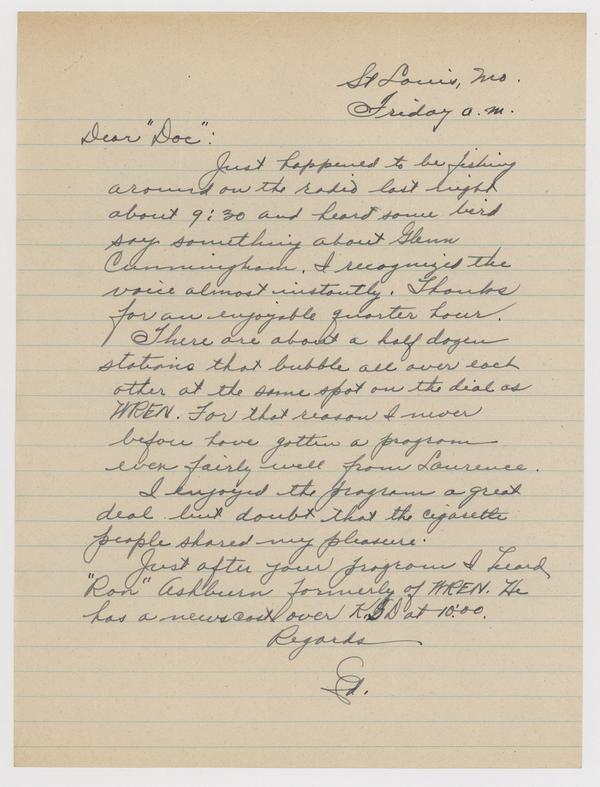 St Louis, Mo.
Friday a.m.
Dear "Doc":
Just happened to be fishing
around on the radio last night
about 9:30 and heard some bird
say something about Glenn
Cunningham. I recognized the
voice almost instantly. Thanks
for an enjoyable quarter hour.
There are about a half dozen
stations that bubble all over each
other at the same spot on the dial as
WREN. For that reason I never
before have gotten a program
even fairly well from Lawrence.
I enjoyed the program a great
deal but doubt that the cigarette
people shared my pleasure.
Just after your program I heard
"Ron" Ashburn formerly of WREN. He
has a newscast over KSD at 10:00.
Regards
Ed.